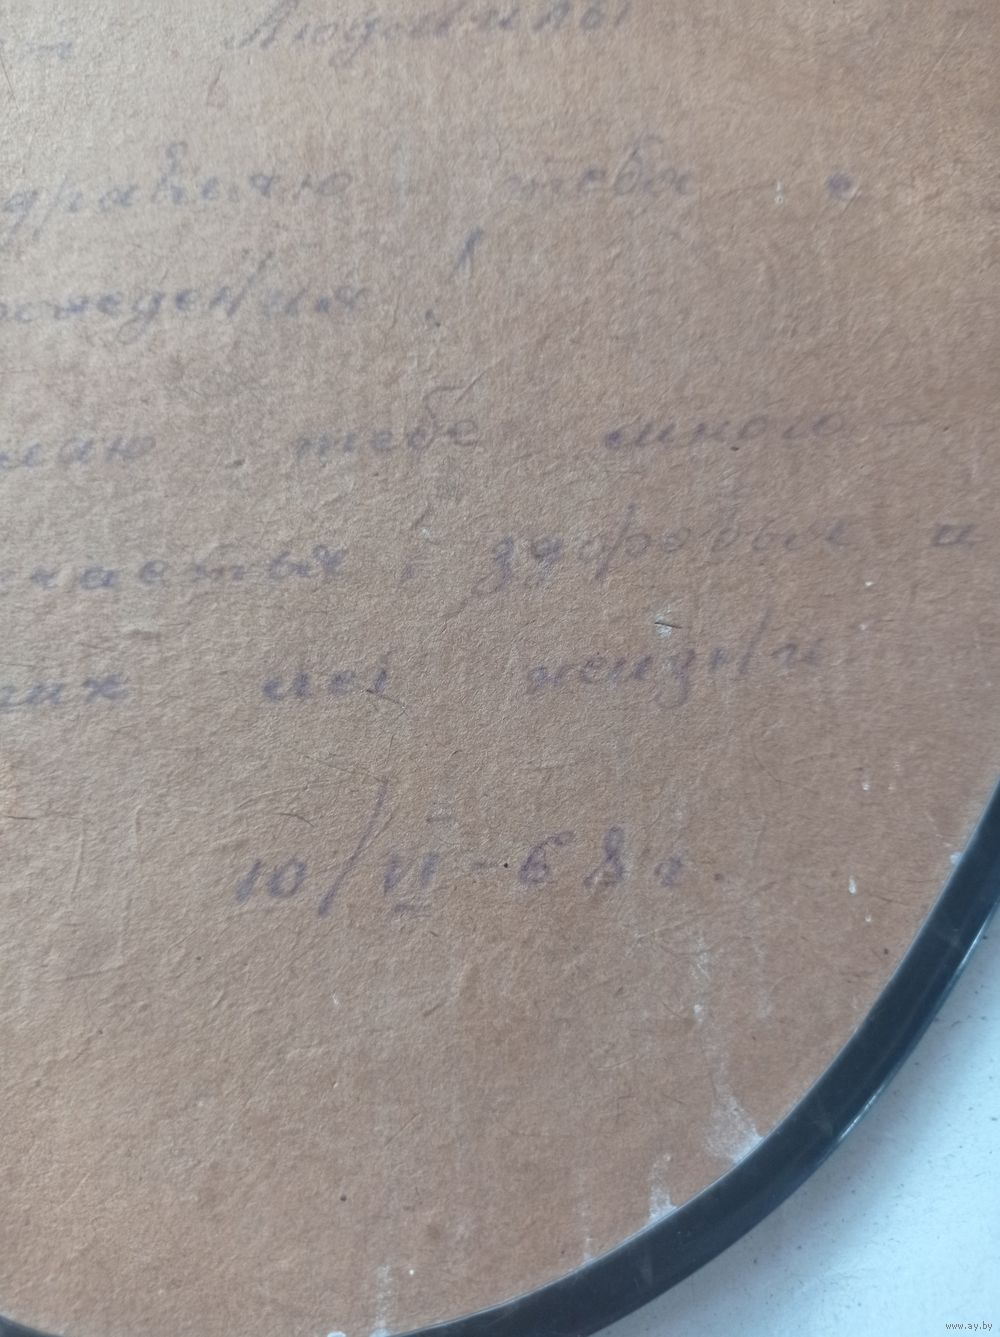 Людмилы
дравляю тебя с
рождения!
лаю тебе много-
счастья, здоровье и
них лет жизни
10/VI-68 г.
www.ay.by